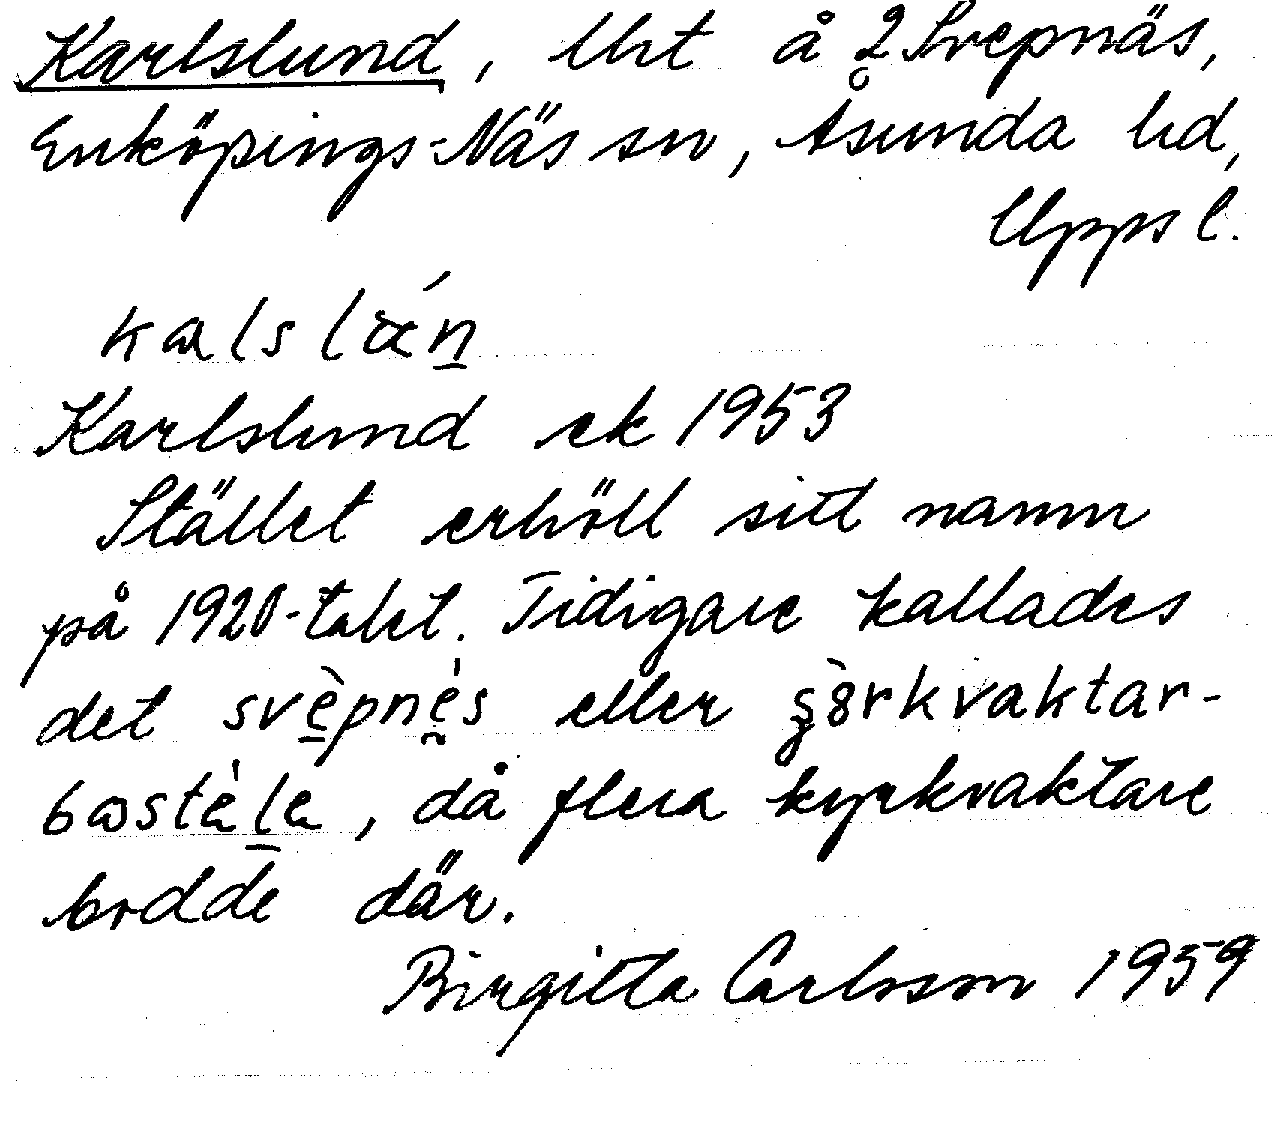 Karlslund, lht å 2 Svepnäs,
Enköpings-Näs sn, Åsunda hd,
Upps l.
Karlslund ek 1953
Stället erhöll sitt namn
på 1920-talet. Tidigare kallades
det svèpnès eller
, då flera kyrkvaktare
bodde där.
Birgitta Carlsson 1959